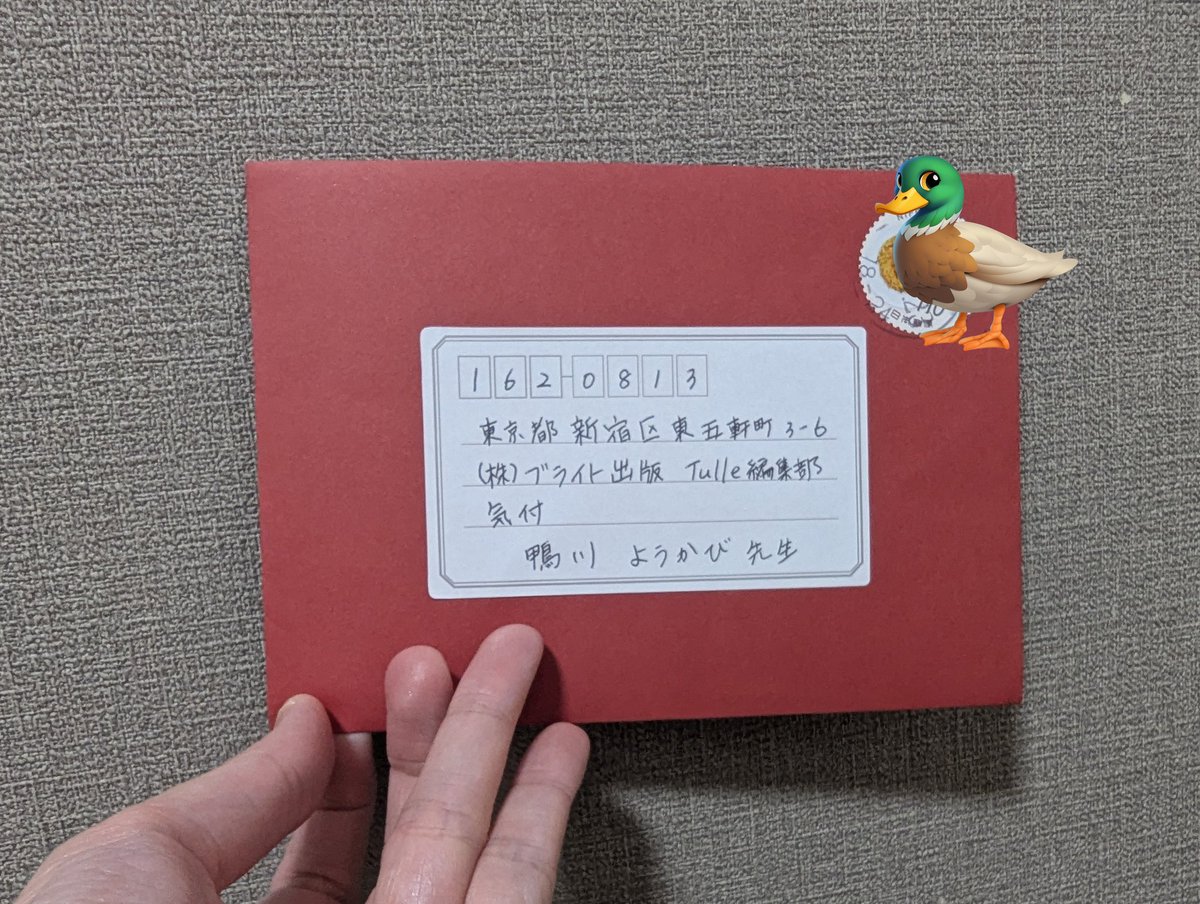 162-0813
東京都新宿区東五軒町3-6
(株)ブライト出版 Tulle編集部
気付
鴨川 ようかび 先生